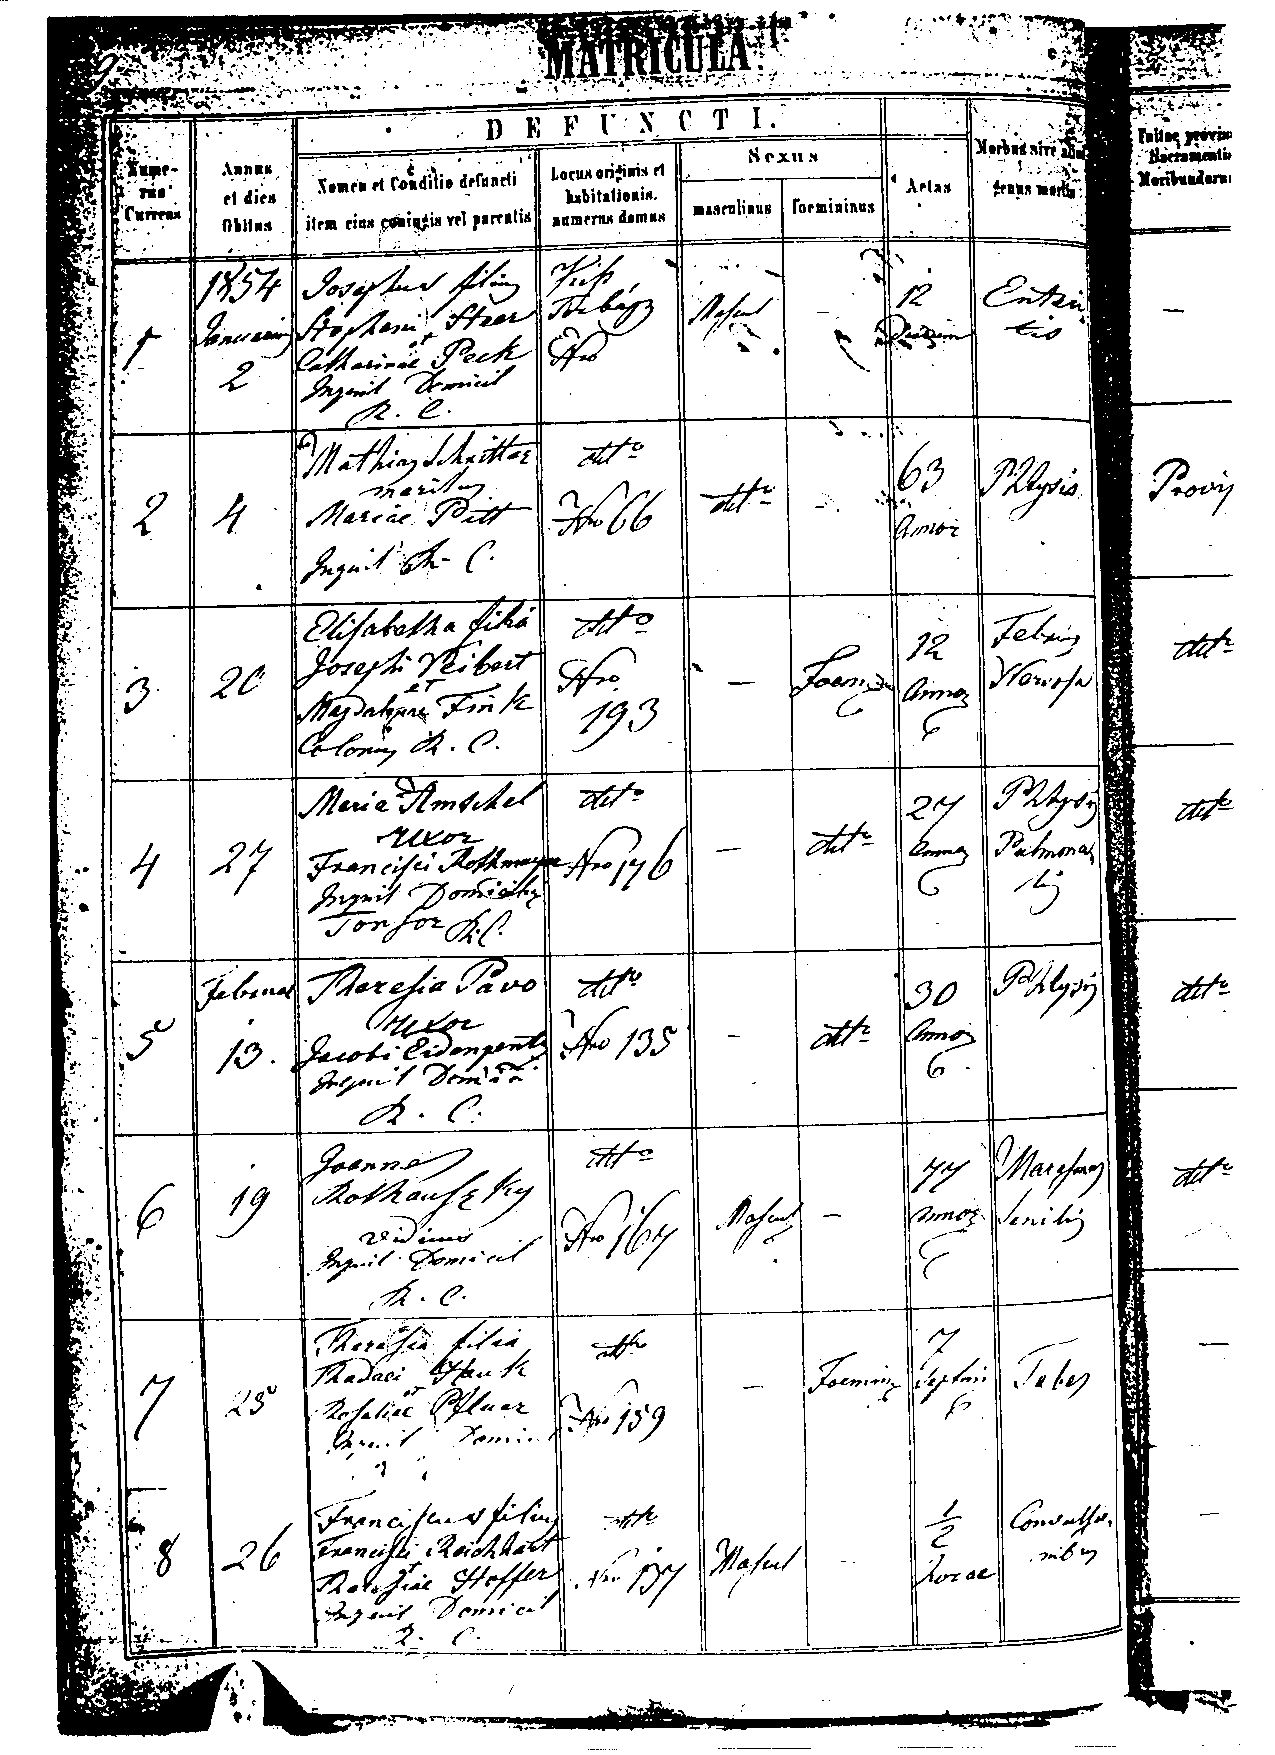 MATRICULA
DEFUNCTI.
Nume-
rus
Currens
Annus
et dies
Obitus
Nomen et Conditio defuncti
item eius coniugis vel parentis
Locus originis et
habitationis,
numerus domus
Sexus
masculinus
foemininus
Aetas
Morbus sive
genus mortis
Moribundorum
1
1854
Januarius
2
Josephus filius
Stephani Staer
et
Catharinae Peck
Inquil Domicil
R. C.
Nro
Mascul
-
12
Enteri
tis
-
2
4
Mathias Schnittar
maritus
Mariae Pitt
Inquil R. C.
ditto
Nro 66
ditto
-
63
annor
Phtysis
Provis
3
20
Elisabetha filia
Josephi Reibert
et
Magdalenae Fink
Colonus R. C.
ditto
Nro
193
-
Foemin
12
Annor
6
Febris
Nervosa
ditto
4
27
Maria Amschel
uxor
Francisci Rothmayer
Inquil Domicilii
Tonsor R. C.
ditto
Nro 176
-
ditto
27
Annor
6
Phtysis
Pulmona
lis
ditto
5
Februar
13.
Theresia Pavo
uxor
Jacobi
Inquil Domicil
R. C.
ditto
Nro 135
-
ditto
30
Annor
6
Phtysis
ditto
6
19
Joannes
viduus
Inquil Domicil
R. C.
ditto
Nro 167
Mascul
-
77
annor
6
Marasmus
Senilis
ditto
7
25
Theresia filia
Thadaei Hauk
et
Rosaliae Pfluar
Inquil Domicil
ditto
Nro 159
-
Foemin
7
Septim
6
Tabes
-
8
26
Franciscus filius
Francisci Reichhart
et
Theresiae Hoffer
Inquil Domicil
R. C.
ditto
Nro 137
Mascul
-
1/2
horae
Convulsio
nibus
-